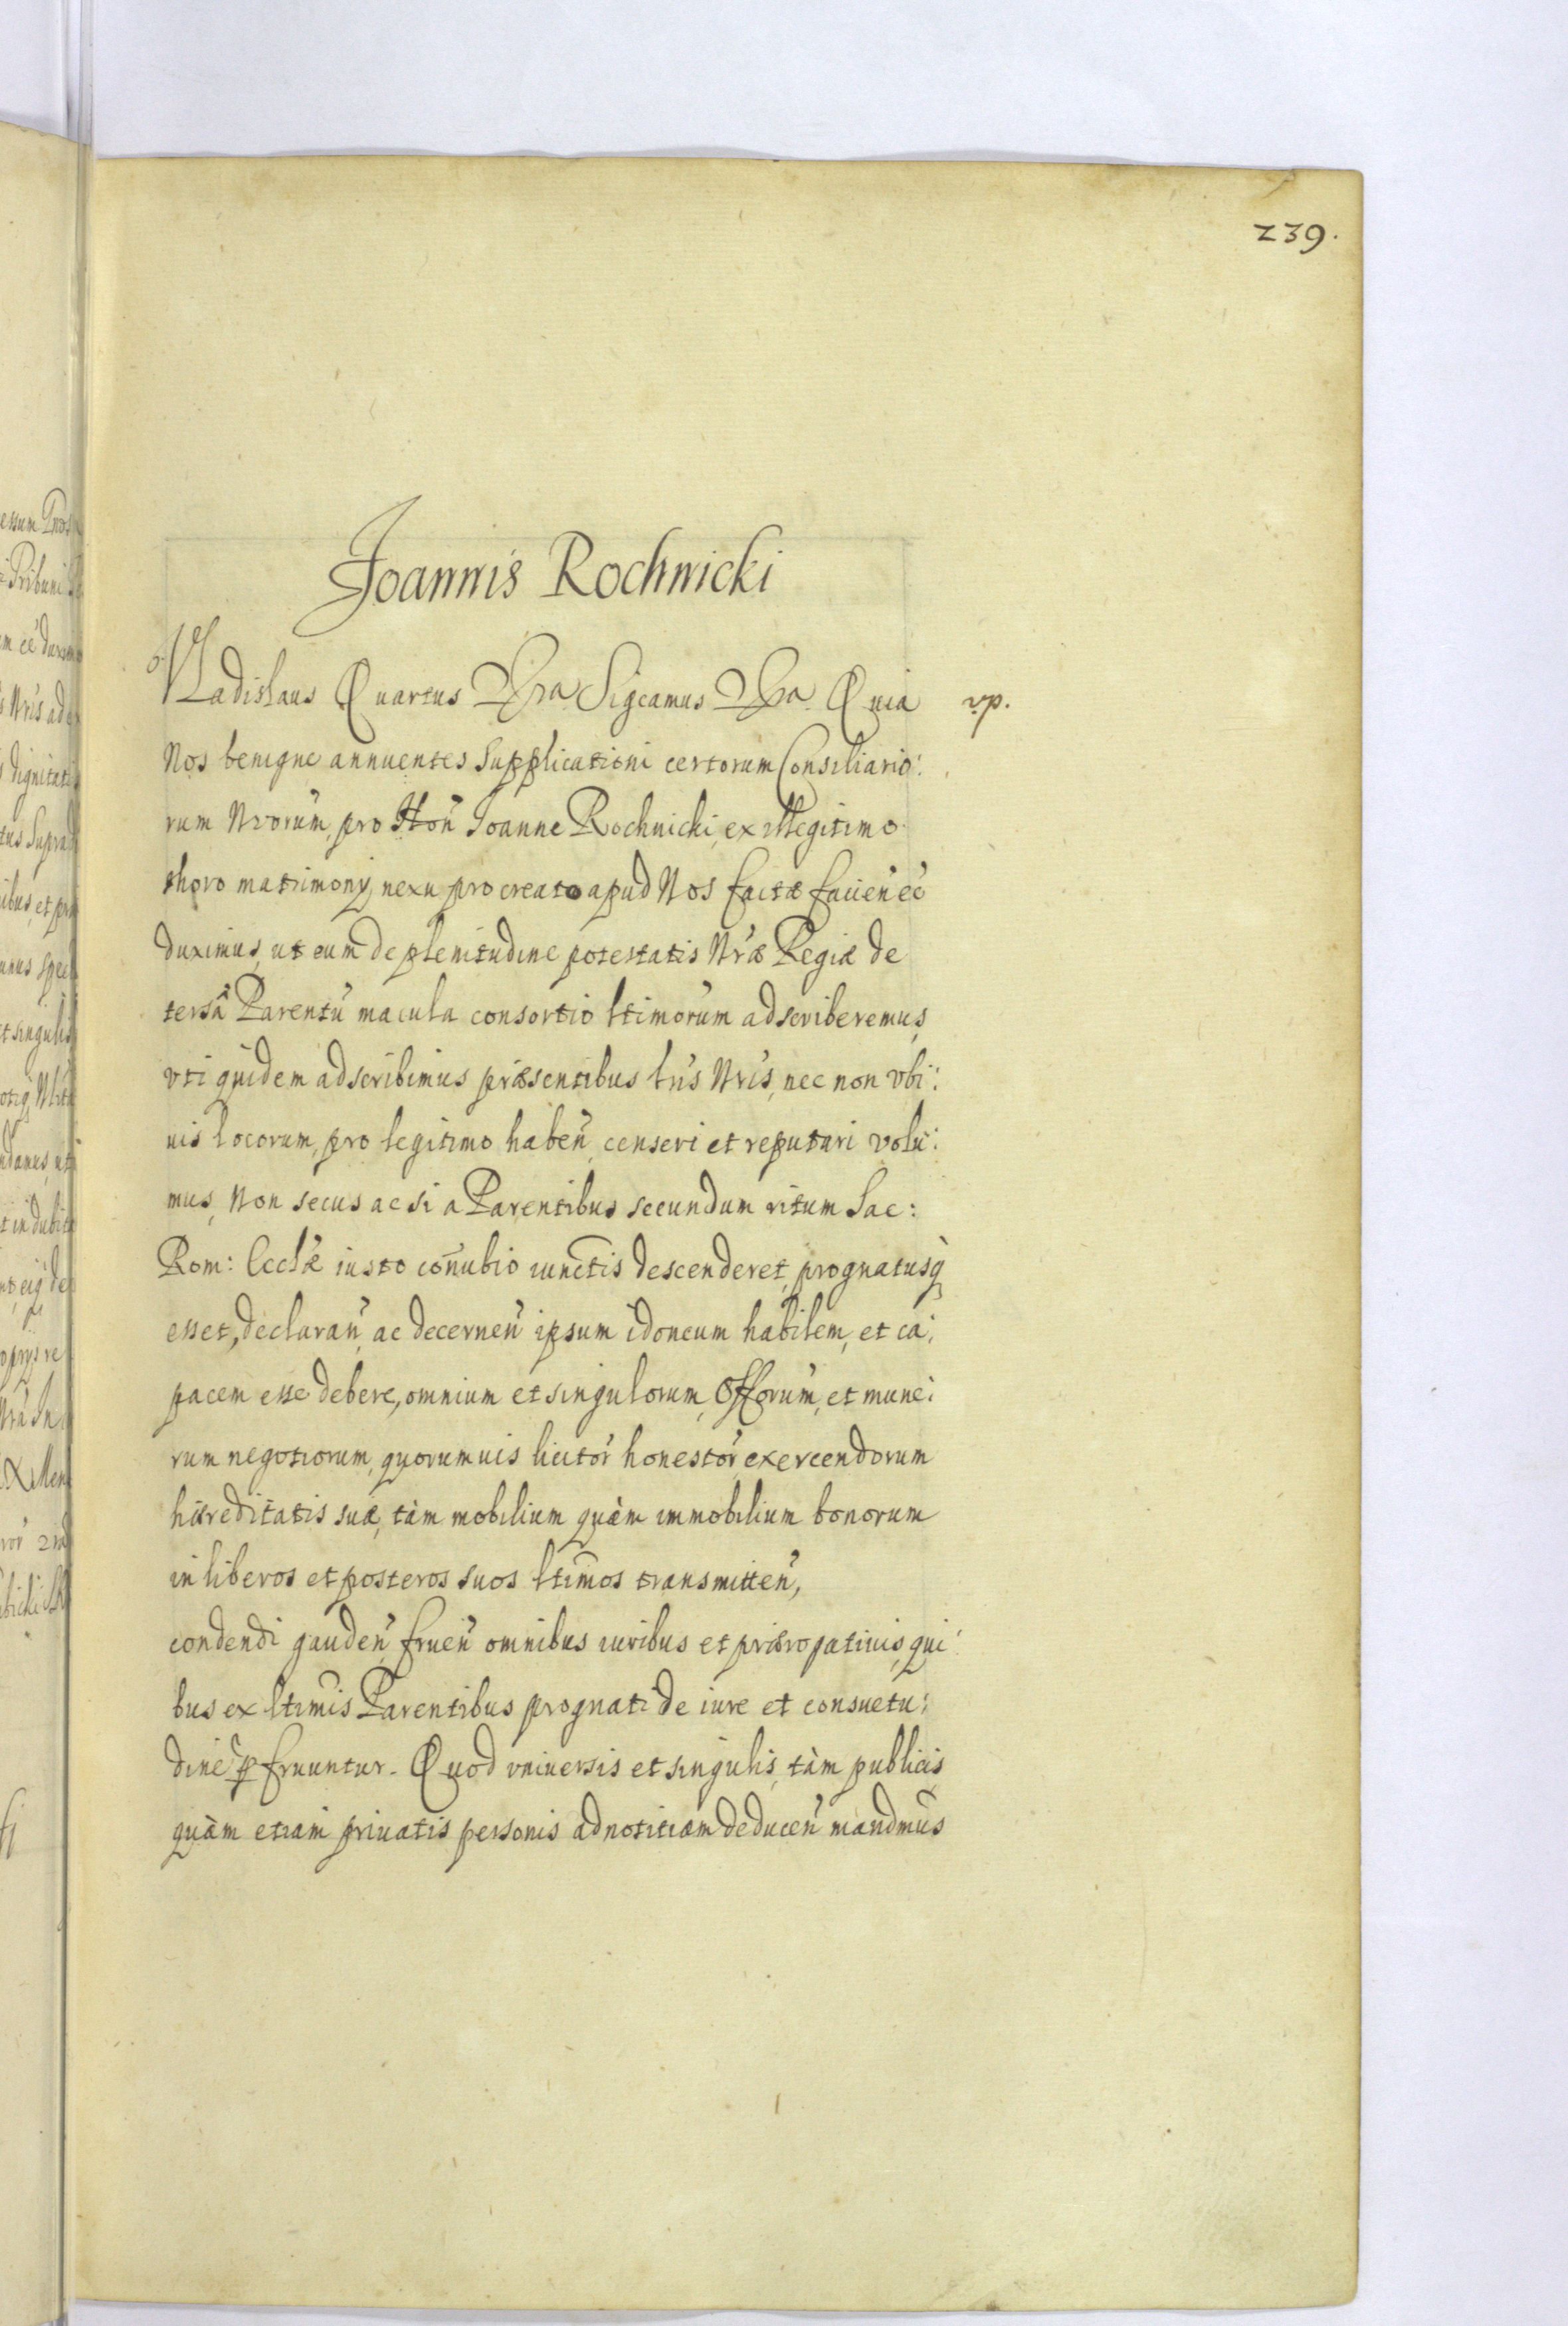 239.
Joannis Rochnicki
Vladislaus Quartus &ra Sigcamus &ra Quia vp.
Nos benigne annuentes Supplicationi certorum Consiliario:
rum Nrorum, pro Hon̄ Joanne Rochnicki, ex illegitimo
thoro matrimony nexu procreato apud Nos factæ fauen̄
duximus, ut eum de plenitudine potestatis Nræ Regiæ de
tersâ Parentū macula consortio ltimorum adscriberemus,
vti quidem adscribimus præsentibus lris Nris, nec non vbi:
uis locorum, pro legitimo haben̄, censeri et reputari volu:
mus, Non secus ac si a Parentibus secundum ritum Sac:
Rom: Ecclæ iusto con̄ubio iunctis descenderet, prognatusq̀
esset, declaran̄, ac decernen̄ ipsum idoneum habilem, et ca:
pacem esse debere, omnium et singulorum, Offorum, et mune:
rum negotiorum, quorumuis licitor̄ honestor̄ exercendorum
hæreditatis suæ, tàm mobilium quàm immobilium bonorum
in liberos et posteros suos ltimos transmitten̄,
condendi gauden̄, fruen̄ omnibus iuribus et prærogatiuis, qui
bus ex ltimis Parentibus prognati de iure et consuetu:
dine ꝑfruuntur. Quod vniuersis et singulis, tàm publicis
quàm etiam priuatis personis ad notitiam deducen̄ mandmus